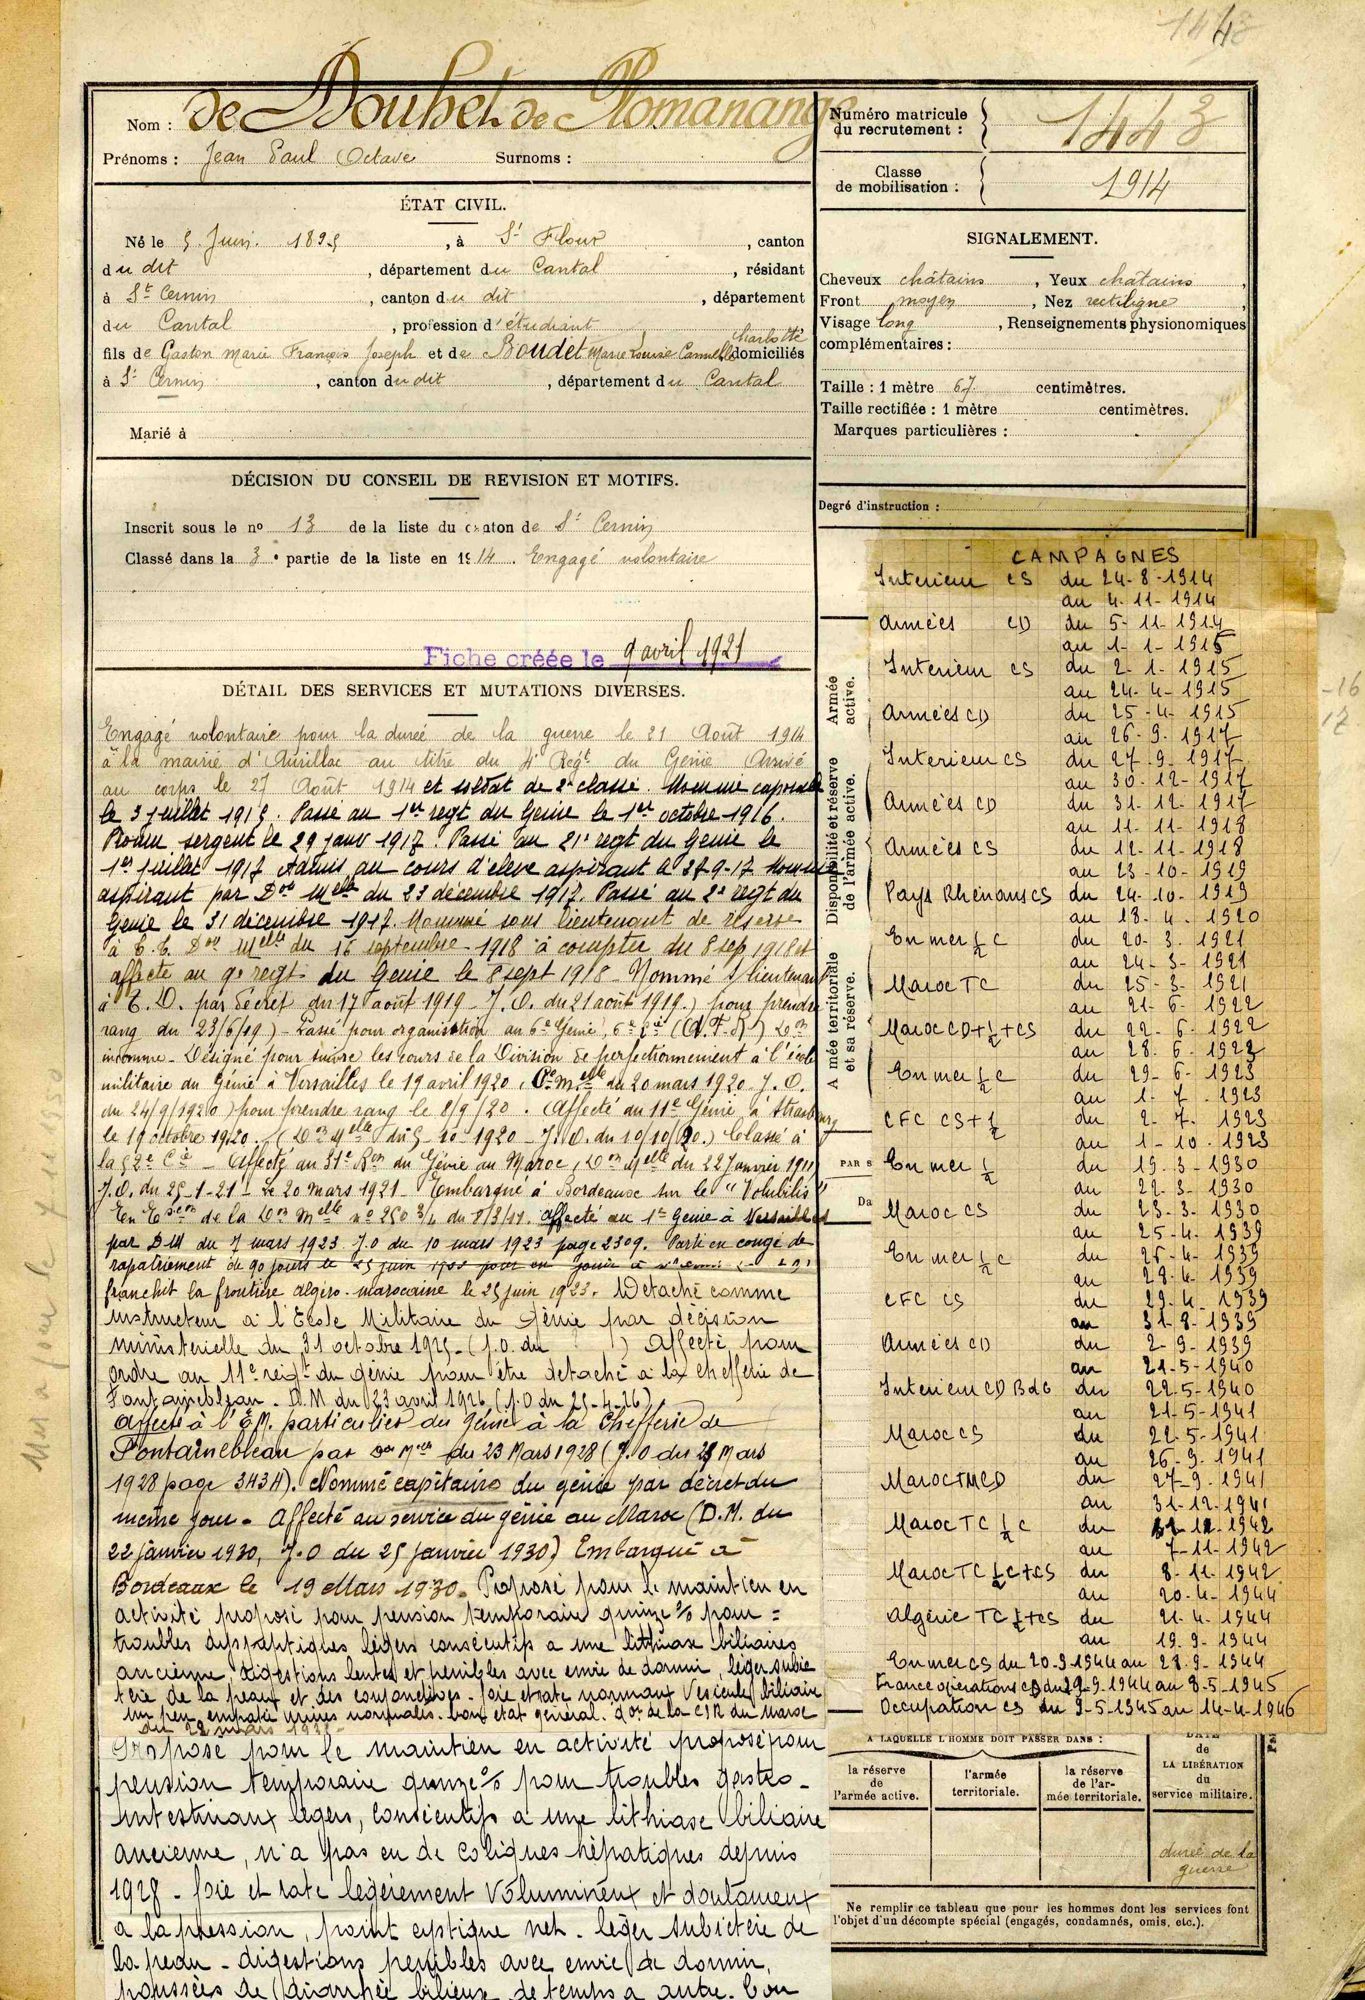 1443
Nom : de Douhet de Romanange
Prénoms : Jean Paul Octave Surnoms :
Numéro matricule du recrutement : 1443
Classe de mobilisation : 1914
ÉTAT CIVIL.
Né le 5 Juin 1895, à St Flour, canton
du dit, département du Cantal, résidant
à St Cernin, canton du dit, département
du Cantal, profession d'étudiant
fils de Gaston Marie François Joseph et de Boudet Marie Louise Camille Charlotte domiciliés
à St Cernin, canton du dit, département du Cantal
Marié à
SIGNALEMENT.
Cheveux châtains, Yeux châtains,
Front moyen, Nez rectiligne,
Visage long, Renseignements physionomiques
complémentaires :
Taille : 1 mètre 67 centimètres.
Taille rectifiée : 1 mètre centimètres.
Marques particulières :
Degré d'instruction :
DÉCISION DU CONSEIL DE REVISION ET MOTIFS.
Inscrit sous le no 13 de la liste du canton de St Cernin
Classé dans la 3e partie de la liste en 1914. Engagé volontaire
Fiche créée le 9 avril 1921
DÉTAIL DES SERVICES ET MUTATIONS DIVERSES.
Engagé volontaire pour la durée de la guerre le 21 Août 1914
à la mairie d'Aurillac au titre du 4e Régt du Génie Arrivé
au corps le 27 Août 1914 et soldat de 2e classe. Nommé caporal
le 3 juillet 1915. Passé au 1er regt du Genie le 1er octobre 1916.
Promu sergent le 29 janv 1917. Passé au 21e regt du Genie le
1er juillet 1917 Admis au cours d'élève aspirant le 27-9-17 Nommé
aspirant par Don Melle du 23 décembre 1917. Passé au 2e regt du
Genie le 31 décembre 1917. Nommé sous lieutenant de réserve
à T.T. Don Melle du 16 septembre 1918 à compter du 8 sep 1918 et
affecté au 9e regt du Genie le 8 sept 1918 - Nommé s/lieutenant
à T.D. par Décret du 17 août 1919 - J.O. du 21 août 1919.) pour prendre
rang du 23/6/19) - Passé pour organisation au 6e Génie, 6e Cie (A.F.R) Don
incomme - Désigné pour suivre les cours de la Division de perfectionnement à l'école
militaire du Génie à Versailles le 19 avril 1920, Don Melle du 20 mars 1920 J.O.
du 24/9/1920) pour prendre rang le 8/9/20. (Affecté au 11e Génie à Strasbourg
le 19 octobre 1920. (Don Melle du 5-10-1920 - J.O. du 10/10/20.) Classé à
la 52e Cie - Affecté au 31e Bon du Génie au Maroc, Don Melle du 22 Janvier 1921
J.O. du 25-1-21 - Le 20 mars 1921 - Embarqué à Bordeaux sur le "Volubilis"
En Eon de la Don Melle no 250 3/4 du 8/3/21. affecté au 1er Genie à Versailles
par DM du 7 mars 1923 J.O du 10 mars 1923 page 2309. Parti en congé de
rapatriement de 90 jours le 25 juin
franchit la frontière algéro-marocaine le 25 juin 1923. Detaché comme
instructeur à l'Ecole Militaire du Génie par décision
ministerielle du 31 octobre 1925 - (J.O. du ) Affecté pour
ordre au 11e regt du génie pour être detaché à la chefferie de
Fontainebleau. D.M du 23 avril 1926 (J.O du 25-4-26)
Affecté à l'E.M. particulier du Génie à la Chefferie de
Fontainebleau par Don Melle du 23 Mars 1928 (J.O du 28 Mars
1928 page 3434). Nommé capitaine du génie par décret du
même jour - Affecté au service du génie au Maroc (D.M. du
22 janvier 1930, J.O du 25 janvier 1930) Embarqué à
Bordeaux le 19 Mars 1930. Proposé pour le maintien en
activité proposé pour pension temporaire quinze % pour =
troubles dyspeptiques légers consécutifs à une lithiase biliaires
ancienne digestions lentes et penibles avec envie de dormir, léger subic
tère de la peau et des conjonctives - foie et rate normaux Vesicule biliaire
un peu empatée urines normales. bon état général. don de la CSR du Maroc
du 22 mars 1932 -
Proposé pour le maintien en activité proposé pour
pension temporaire quinze % pour troubles gastro-
intestinaux légers, consécutifs à une lithiase biliaire
ancienne, n'a pas eu de coliques hépatiques depuis
1928 - foie et rate légèrement volumineux et douloureux
à la pression, point cystique net - léger subictère de
la peau - digestions penibles avec envie de dormir,
poussées de diarrhée bilieuse de temps à autre. Bon
CAMPAGNES
Interieur CS du 24-8-1914
au 4-11-1914
Armées CD du 5-11-1914
au 1-1-1915
Interieur CS du 2-1-1915
au 24-4-1915
Armées CD du 25-4-1915
au 26-9-1917
Interieur CS du 27-9-1917
au 30-12-1917
Armées CD du 31-12-1917
au 11-11-1918
Armées CS du 12-11-1918
au 23-10-1919
Pays Rhénans CS du 24-10-1919
au 18-4-1920
En mer 1/2 C du 20-3-1921
au 24-3-1921
Maroc TC du 25-3-1921
au 21-6-1922
Maroc CD+1/2+CS du 22-6-1922
au 28-6-1923
En mer 1/2 C du 29-6-1923
au 1-7-1923
CFC CS+1/2 du 2-7-1923
au 1-10-1923
En mer 1/2 du 19-3-1930
au 22-3-1930
Maroc CS du 23-3-1930
au 25-4-1939
En mer 1/2 C du 26-4-1939
au 28-4-1939
CFC CS du 29-4-1939
au 31-8-1939
Armées CD du 2-9-1939
au 21-5-1940
Interieur CD BdG du 22-5-1940
au 21-5-1941
Maroc CS du 22-5-1941
au 26-9-1941
Maroc TMCD du 27-9-1941
au 31-12-1941
Maroc TC 1/2 C du 1942
au 7-11-1942
Maroc TC 1/2 C+CS du 8-11-1942
au 20-4-1944
Algérie TC 1/2+CS du 21-4-1944
au 19-9-1944
En mer CS du 20-9-1944 au 28-9-1944
France opérations CD du 29-9-1944 au 8-5-1945
Occupation CS du 9-5-1945 au 14-4-1946
Armée active.
Disponibilité et réserve de l'armée active.
A mée territoriale et sa réserve.
PAR S
Da
A LAQUELLE L'HOMME DOIT PASSER DANS :
la réserve de l'armée active.
l'armée territoriale.
la réserve de l'armée territoriale.
DATE de LA LIBÉRATION du service militaire.
durée de la guerre
Ne remplir ce tableau que pour les hommes dont les services font
l'objet d'un décompte spécial (engagés, condamnés, omis, etc.).
-16
17